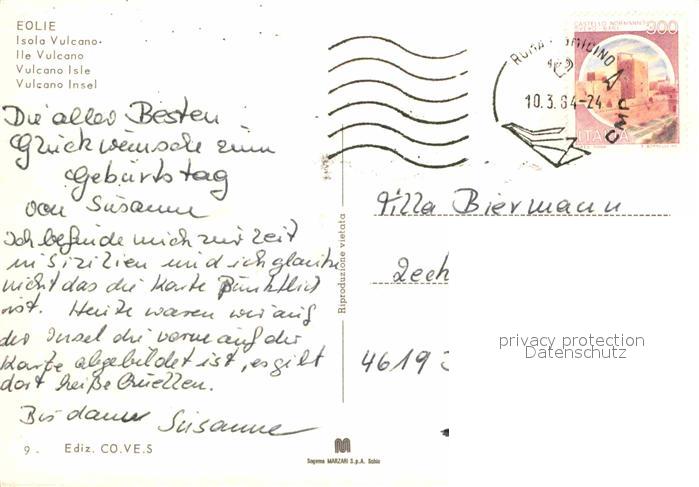 EOLIE
Isola Vulcano
Ile Vulcano
Vulcano Isle
Vulcano Insel
Die aller Besten
Glückwünsche zum
Geburtstag
von Susanne
Ich befinde mich zur Zeit
in Sizilien und ich glaube
nicht das die Karte Pünktlich
ist. Heute waren wir auf
der Insel die vorne auf der
Karte abgebildet ist, es gibt
dort heiße Quellen.
Bis dann Susanne
9. Ediz. CO.VE.S
Riproduzione vietata
Sagema MARZARI S.p.A. Schio
CASTELLO NORMANNO
300
ITALIA
ROMA FIUMICINO
10.3.84-24
CMP
Tilla Biermann
Zech
4619
privacy protection
Datenschutz